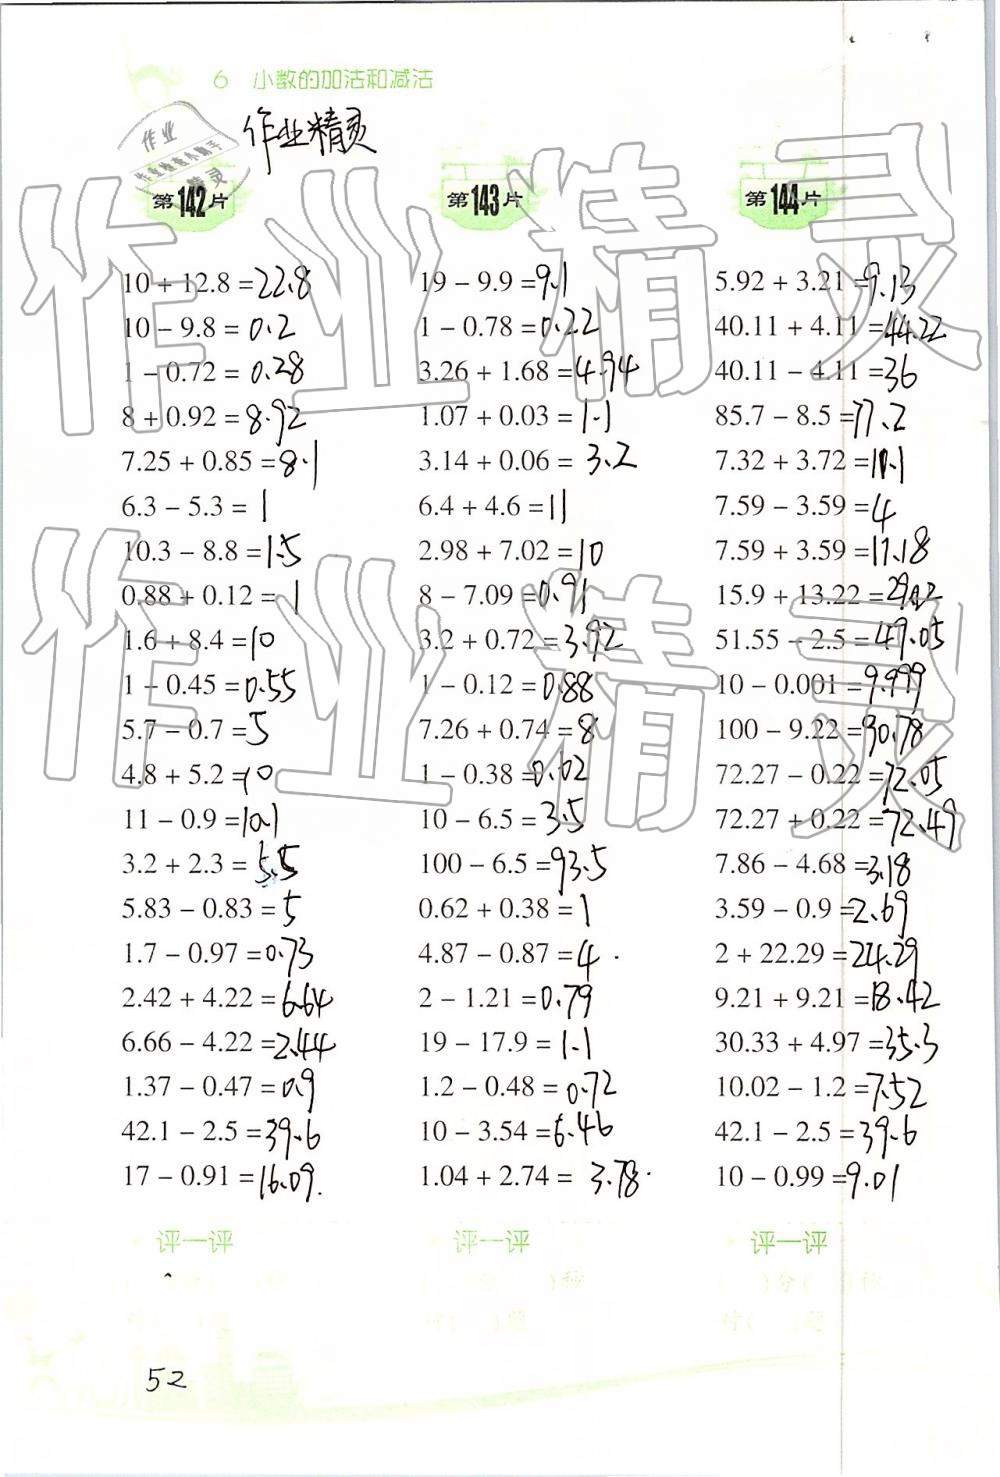 6 小数的加法和减法
作业
作业检查小助手
精灵
作业精灵
第142片
10 + 12.8 = 22.8
10 − 9.8 = 0.2
1 − 0.72 = 0.28
8 + 0.92 = 8.92
7.25 + 0.85 = 8.1
6.3 − 5.3 = 1
10.3 − 8.8 = 1.5
0.88 + 0.12 = 1
1.6 + 8.4 = 10
1 − 0.45 = 0.55
5.7 − 0.7 = 5
4.8 + 5.2 = 10
11 − 0.9 = 10.1
3.2 + 2.3 = 5.5
5.83 − 0.83 = 5
1.7 − 0.97 = 0.73
2.42 + 4.22 = 6.64
6.66 − 4.22 = 2.44
1.37 − 0.47 = 0.9
42.1 − 2.5 = 39.6
17 − 0.91 = 16.09
评一评
第143片
19 − 9.9 = 9.1
1 − 0.78 = 0.22
3.26 + 1.68 = 4.94
1.07 + 0.03 = 1.1
3.14 + 0.06 = 3.2
6.4 + 4.6 = 11
2.98 + 7.02 = 10
8 − 7.09 = 0.91
3.2 + 0.72 = 3.92
1 − 0.12 = 0.88
7.26 + 0.74 = 8
1 − 0.38 = 0.62
10 − 6.5 = 3.5
100 − 6.5 = 93.5
0.62 + 0.38 = 1
4.87 − 0.87 = 4
2 − 1.21 = 0.79
19 − 17.9 = 1.1
1.2 − 0.48 = 0.72
10 − 3.54 = 6.46
1.04 + 2.74 = 3.78
评一评
( )分( )秒
对( )题
第144片
5.92 + 3.21 = 9.13
40.11 + 4.11 = 44.22
40.11 − 4.11 = 36
85.7 − 8.5 = 77.2
7.32 + 3.72 =
7.59 − 3.59 = 4
7.59 + 3.59 = 11.18
15.9 + 13.22 = 29.12
51.55 − 2.5 = 49.05
10 − 0.001 = 9.999
100 − 9.22 = 90.78
72.27 − 0.22 = 72.05
72.27 + 0.22 = 72.49
7.86 − 4.68 = 3.18
3.59 − 0.9 = 2.69
2 + 22.29 = 24.29
9.21 + 9.21 = 18.42
30.33 + 4.97 = 35.3
10.02 − 1.2 = 7.52
42.1 − 2.5 = 39.6
10 − 0.99 = 9.01
评一评
( )分( )秒
对( )题
52
作业精灵
作业精灵